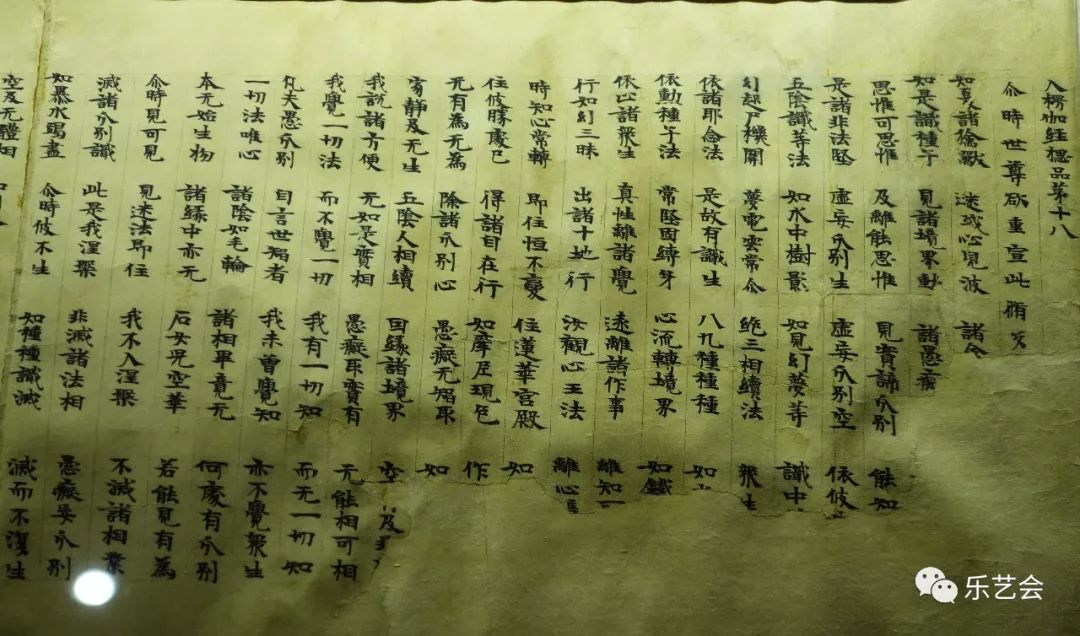 入楞伽經揔品第十八
尒時世尊欲重宣此脩
如夏諸禽獸 迷或心見波 諸禽
如是識種子 見諸境界動 諸愚癡
思惟可思惟 及離能思惟 見實諦分別 能知
是諸非法堅 虛妄分別生 虛妄分別空 依彼
五陰識等法 如水中樹影 如見幻夢等 識中
幻起尸機關 夢電雲常尒 絕三相續法 衆生
依諸邪念法 是故有識生 八九種種種 如
依動種子法 常堅固縛身 心流轉境界 如鐵
依心諸衆生 真性離諸覺 遠離諸作事 離知
行如幻三昧 出諸十地行 汝觀心王法 離心
時知心常轉 即住恒不變 住蓮華宮殿 如
住彼勝處已 得諸自在行 如摩尼現色 作
无有為无為 除諸分別心 愚癡无智取 如
寂靜及无生 五陰人相續 因緣諸境界 空及
我說諸方便 无如是實相 愚癡取實有 无能相可相
我覺一切法 而不覺一切 我有一切知 而无一切知
凡夫愚分別 自言世智者 我未曾覺知 亦不覺衆生
一切法唯心 諸陰如毛輪 諸相畢竟无 何處有分別
本无始生物 諸緣中亦无 石女兒空華 若能見有為
尒時見可見 見迷法即住 我不入涅槃 不滅諸相業
滅諸分別識 此是我涅槃 非滅諸法相 愚癡妄分別
如暴水竭盡 尒時彼不生 如種種識滅 滅而不復生
空及无體相
乐艺会